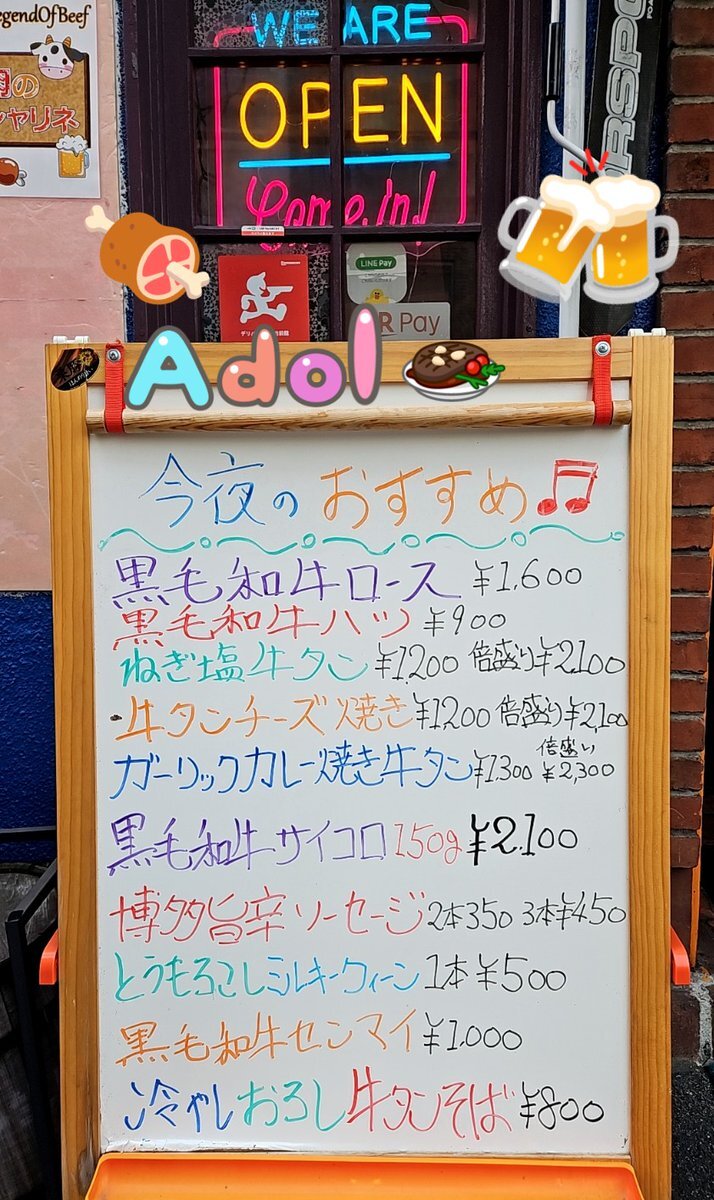 egendOfBeef
の
ャリネ
WE ARE
OPEN
Come in!
LINE Pay
R Pay
Adol
今夜のおすすめ
黒毛和牛ロース ¥1,600
黒毛和牛ハツ ¥900
ねぎ塩牛タン ¥1200 倍盛り¥2,100
・牛タンチーズ焼き¥1200 倍盛り¥2,100
ガーリックカレー焼き牛タン¥1300 倍盛い ¥2,300
黒毛和牛サイコロ150g ¥2,100
博多旨辛ソーセージ2本350 3本¥450
とうもろこしミルキークィーン1本¥500
黒毛和牛センマイ¥1,000
冷やしおろし牛タンそば¥800